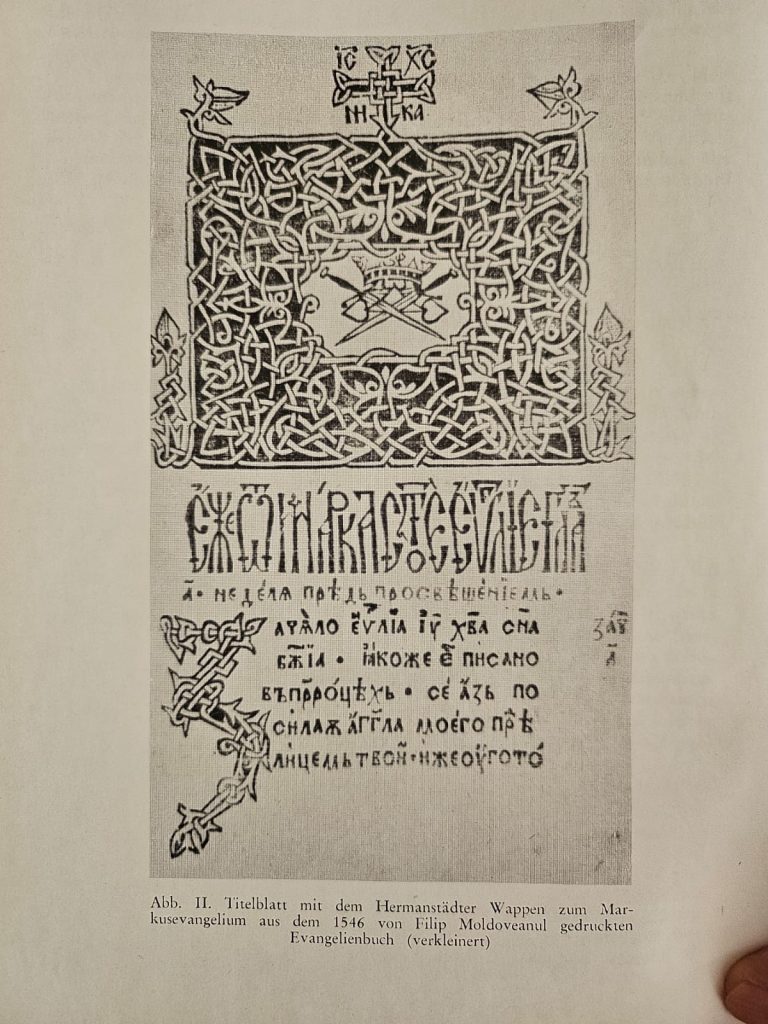 ІС ХС
НИ КА
Е҆́же ѿ ма́рка ст҃о́е є҆ѵⷢ҇лїе гла҃
а҃· неде́лѧ прѣ́дь просвѣще́нїемь·
Зачѧ́ло є҆ѵⷢ҇лїа і҆ѵ҃ хв҃а сн҃а
бж҃їа · ꙗ҆́коже е҆́ писано
въ прⷪ҇ро́цѣхь · се а҆́зь по
силаѫ а҆́гг҃ла моего прѣⷣ
лицемь твои҆́·и҆́же ѹ҆гото́
заⷱ҇
а҃
Abb. II. Titelblatt mit dem Hermanstädter Wappen zum Mar-
kusevangelium aus dem 1546 von Filip Moldoveanul gedruckten
Evangelienbuch (verkleinert)